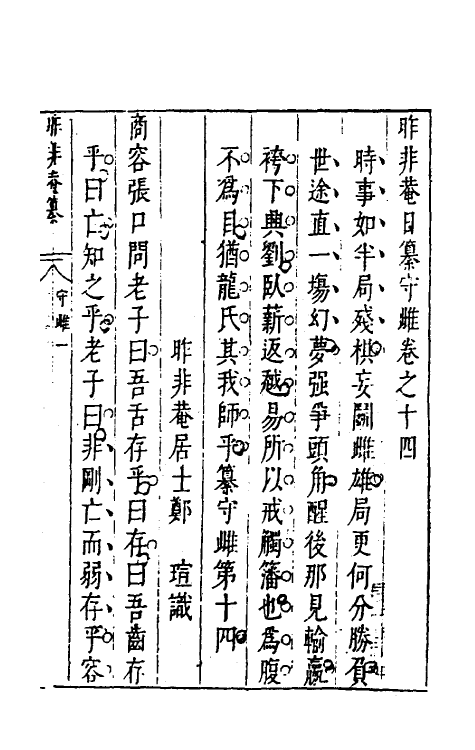 昨非菴日纂守雌卷之十四
時事如半局殘棋妄鬭雌雄局更何分勝負
世途直一塲幻夢强爭頭角醒後那見輸贏
袴下興劉臥薪返越易所以戒觸藩也為腹
不為目猶龍氏其我師乎纂守雌第十四
昨非菴居士鄭 瑄識
商容張口問老子曰吾舌存乎曰存曰吾齒存
乎曰亡知之乎老子曰非剛亡而弱存乎容
昨非菴纂 二八 守雌 一